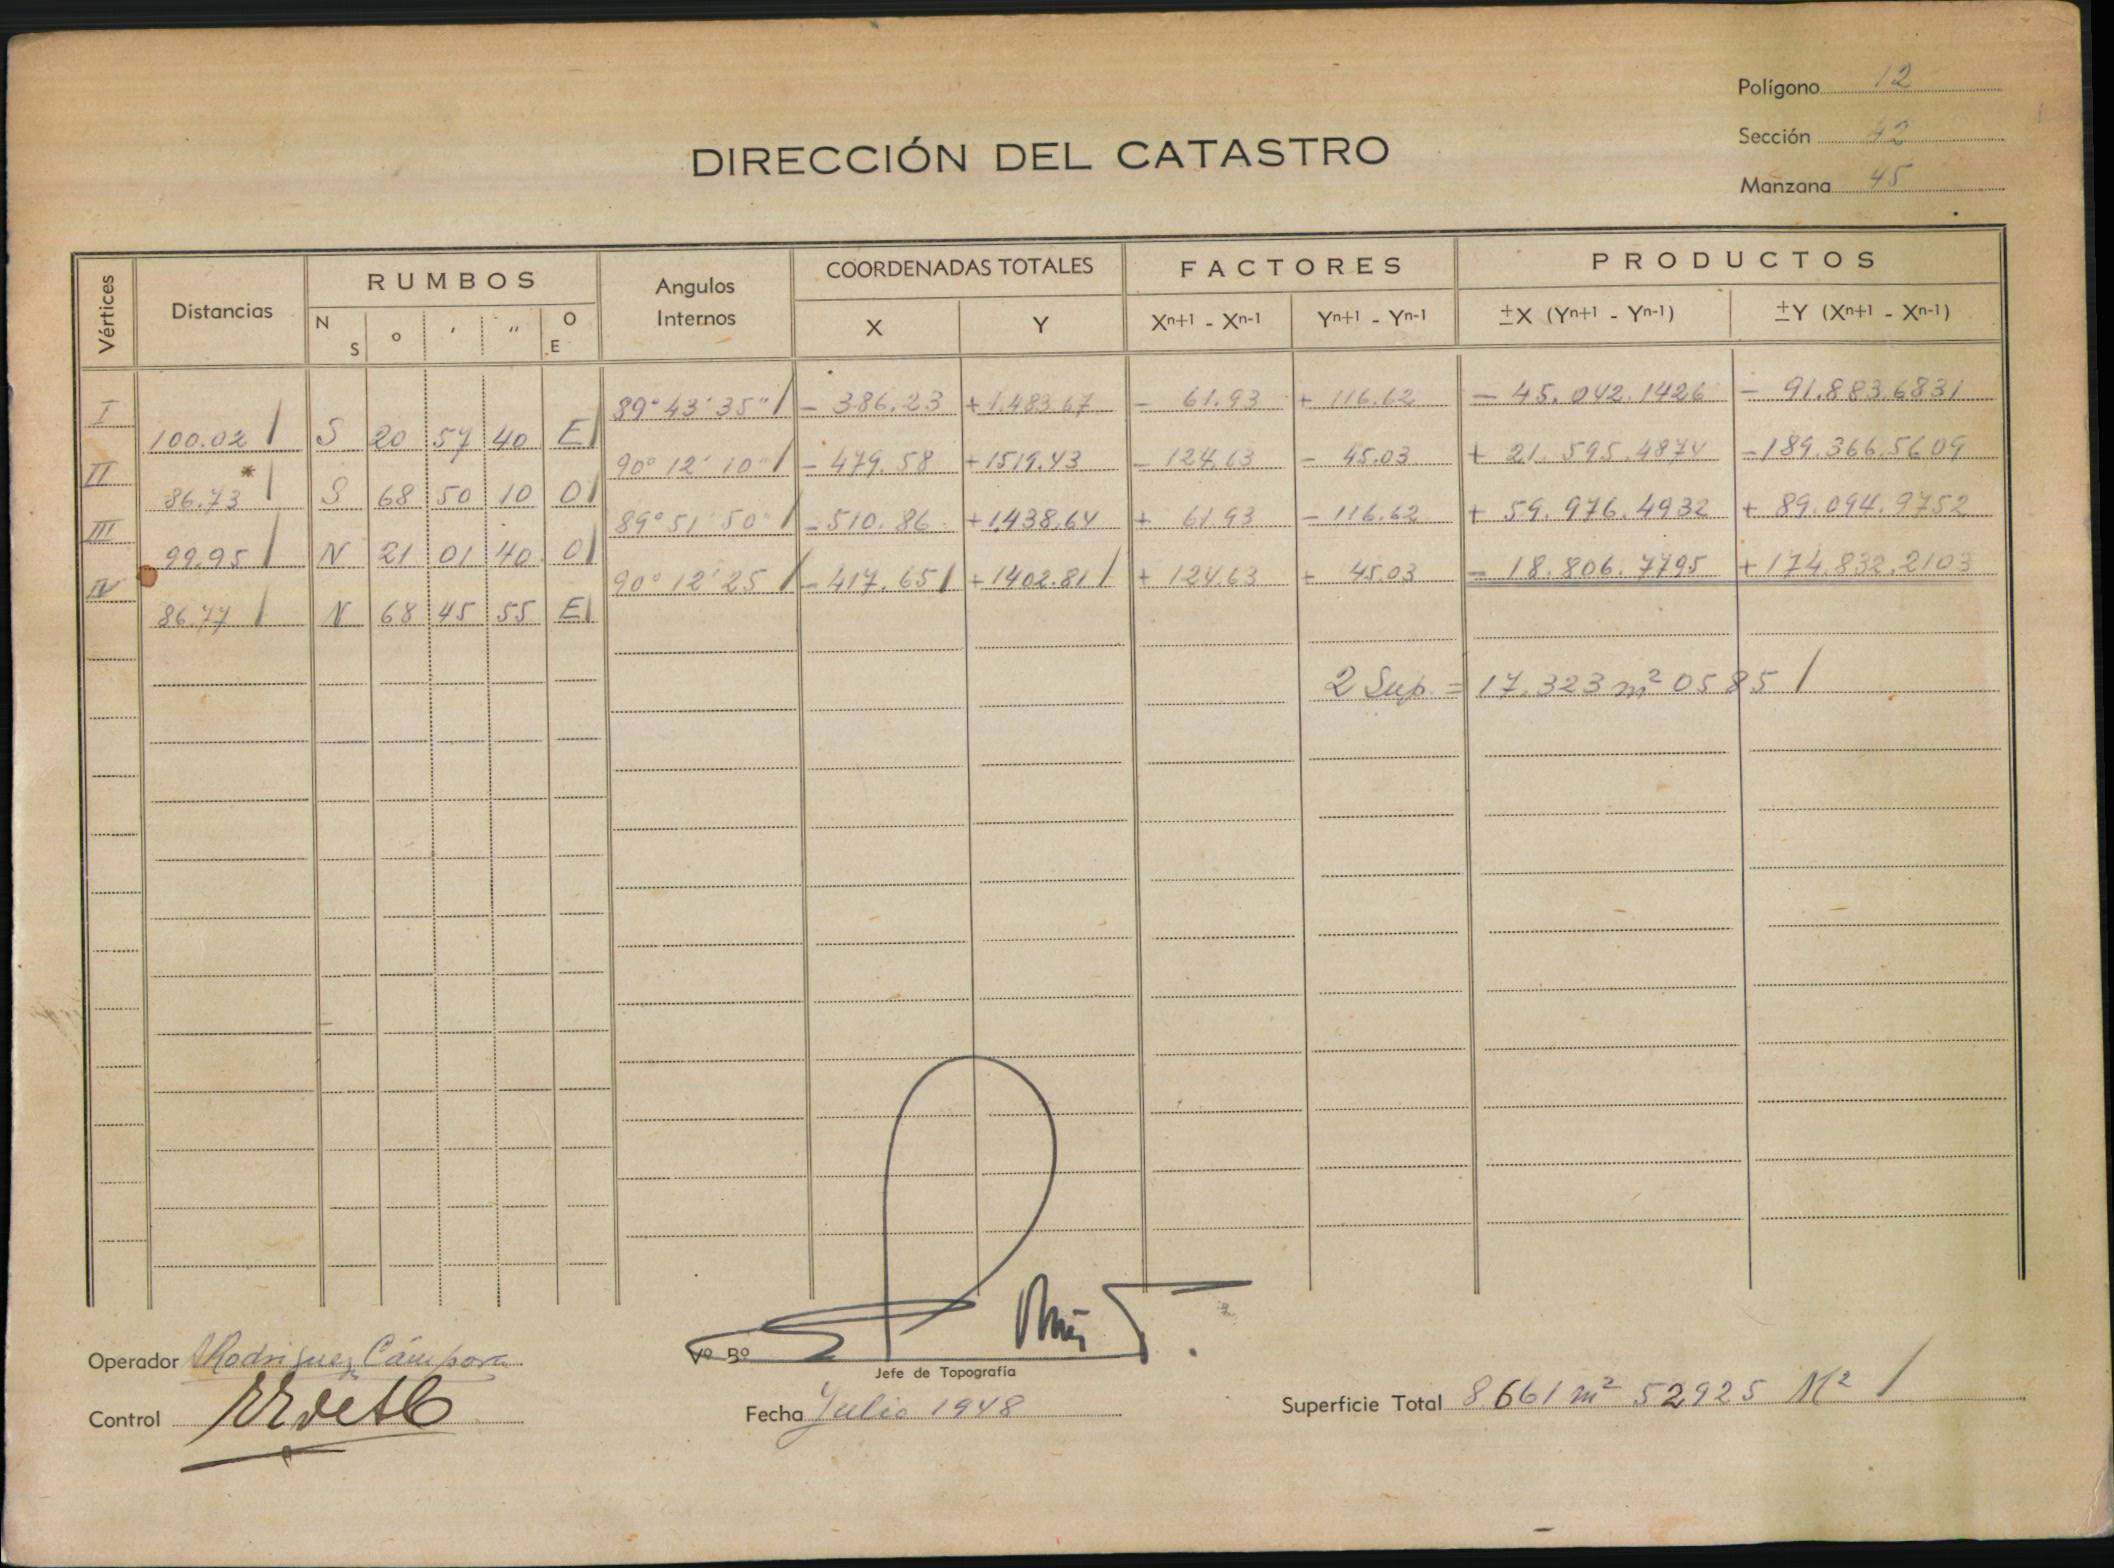 Polígono 12
Sección 42
Manzana 45
DIRECCIÓN DEL CATASTRO
Vértices Distancias RUMBOS Angulos Internos COORDENADAS TOTALES FACTORES PRODUCTOS
N S ° ' " O E X Y Xn+1 - Xn-1 Yn+1 - Yn-1 ±X (Yn+1 - Yn-1) ±Y (Xn+1 - Xn-1)
I 89° 43' 35" - 386.23 + 1.483.67 - 61.93 + 116.62 - 45.042.1426 - 91.883.6831
100.02 S 20 57 40 E
II 90° 12' 10" - 479.58 + 1519.43 - 124.63 - 45.03 + 21.595.4874 - 189.366.5609
86.73 * S 68 50 10 O
III 89° 51' 50" - 510.86 + 1.438.64 + 61.93 - 116.62 + 59.976.4932 + 89.094.9752
99.95 N 21 01 40 O
IV 90° 12' 25 - 417.65 + 1402.81 + 124.63 + 45.03 - 18.806.7795 + 174.832.2103
86.77 N 68 45 55 E
2 Sup. = 17.323 m² 0585
Operador Rodriguez Cámpora
Vº Bº
Jefe de Topografía
Control
Fecha Julio 1948
Superficie Total 8.661 m² 52925 M²